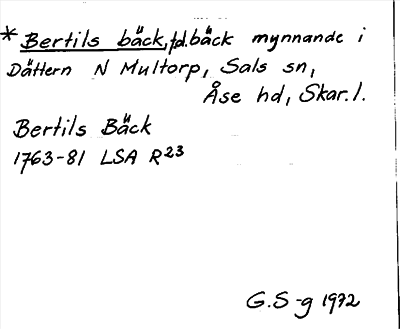 * Bertils bäck, fd. bäck mynnande i
Dättern N Multorp, Sals sn,
Åse hd, Skar. l.
Bertils Bäck
1763-81 LSA R23
G.S-g 1972